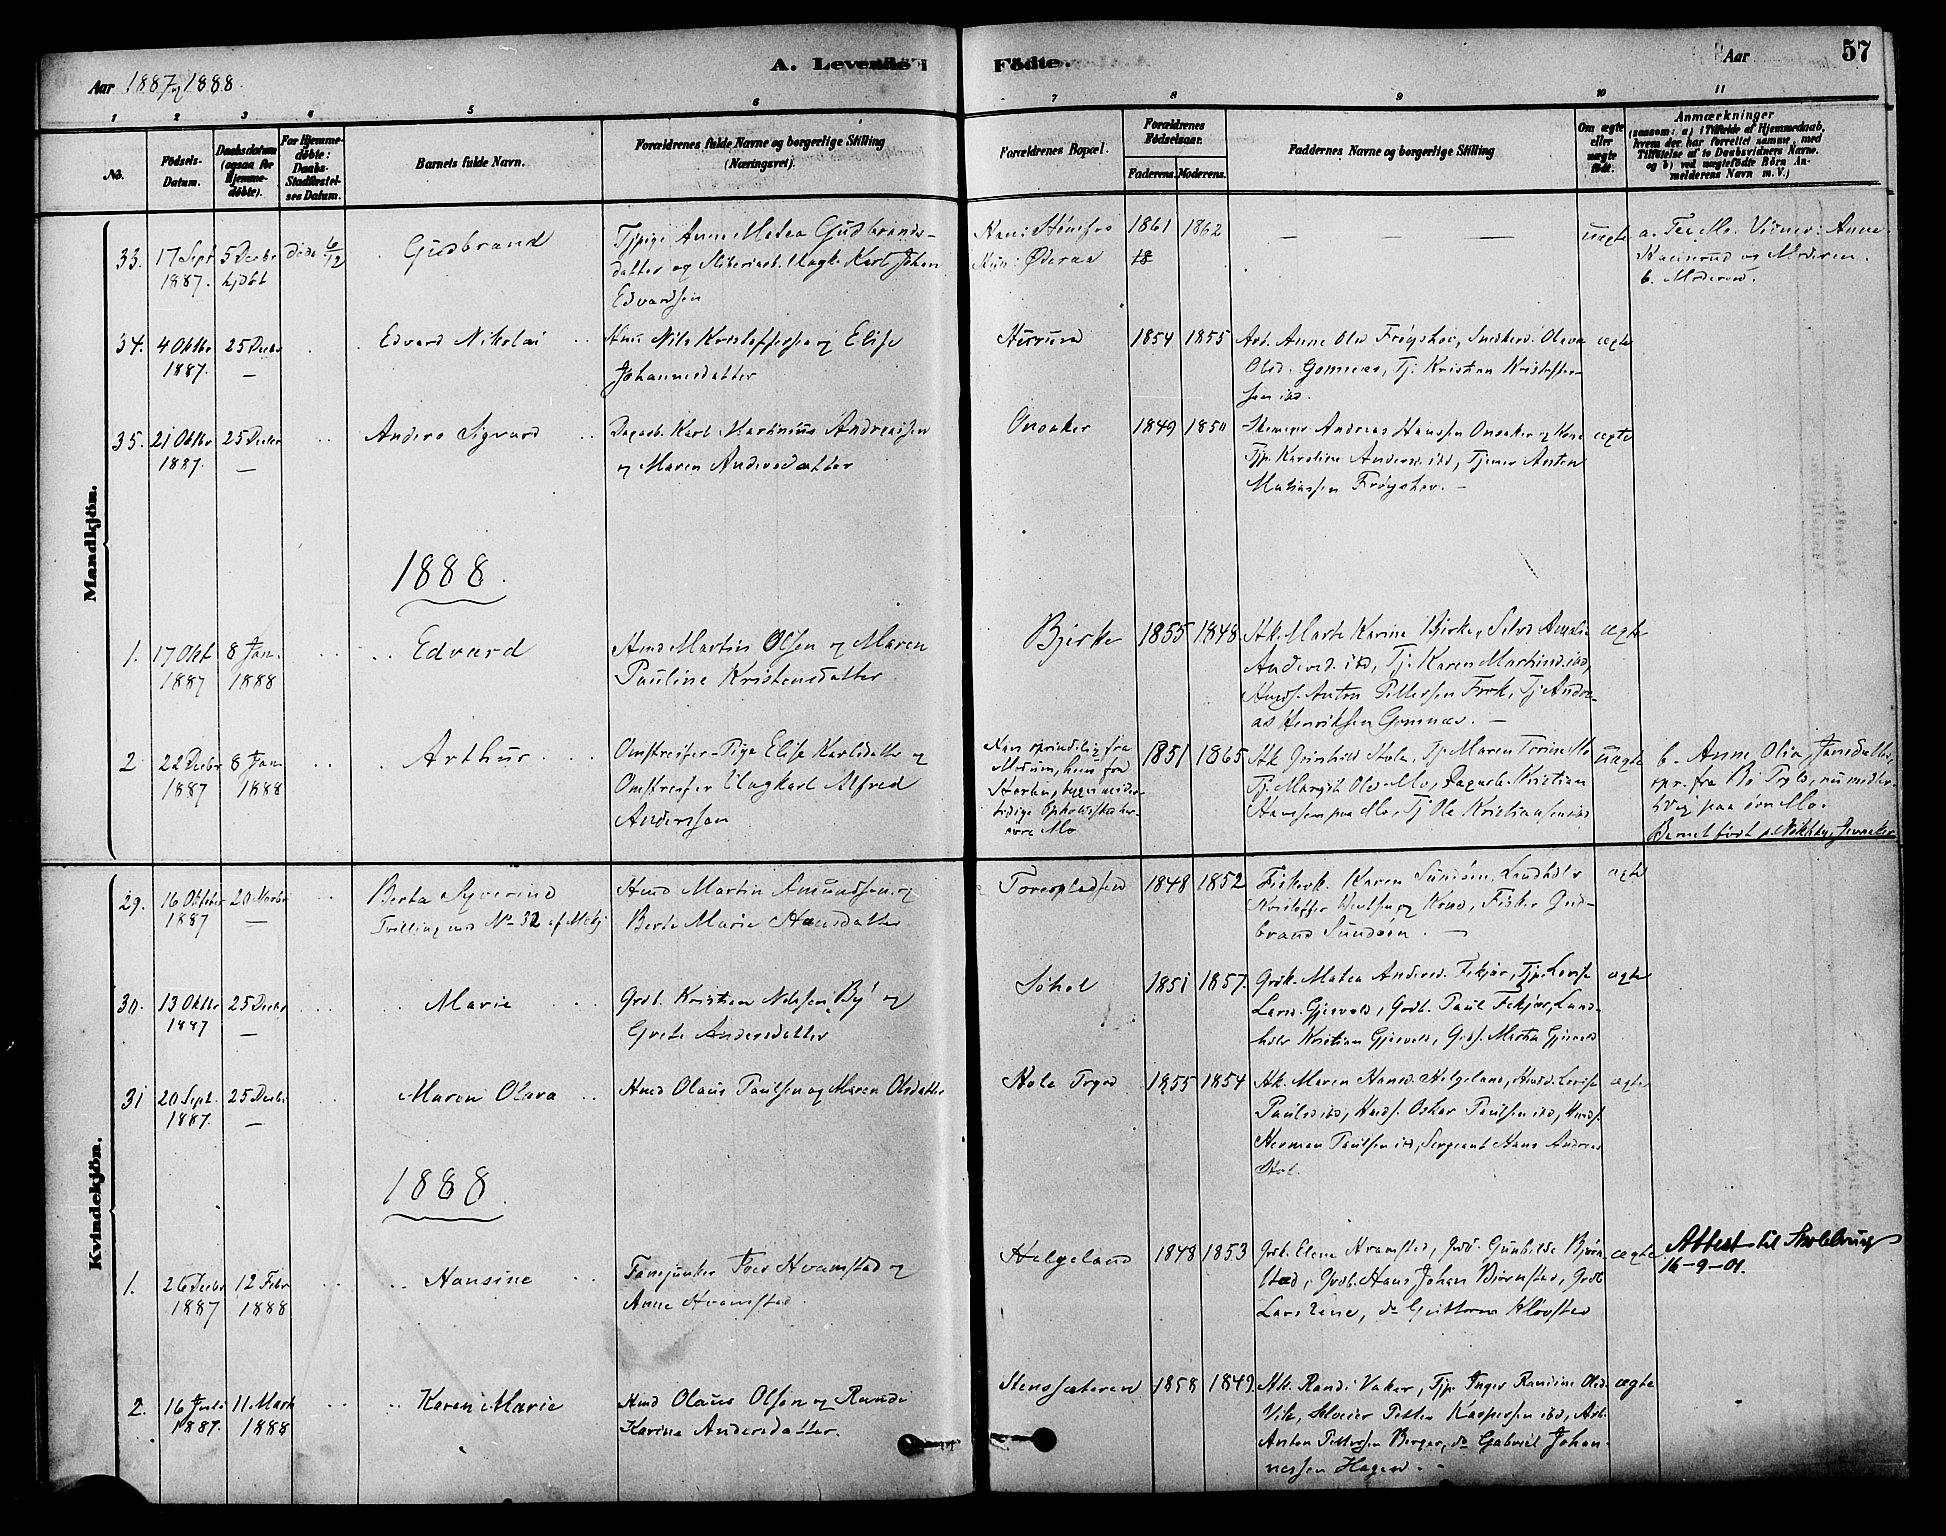 Aar 1887 og 1888.
A. Levende
Födte.
Aar
57
1 2 3 4 5 6 7 8 9 10 11
No.
Födsels-Datum.
Daabsdatum (ogsaa for Hjemme-døbte).
For Hjemme-døbte: Daabs-Stadfæstelses Datum.
Barnets fulde Navn.
Forældrenes fulde Navne og borgerlige Stilling (Næringsvei).
Forældrenes Bopæl.
Forældrenes Födselsaar.
Faderens. Moderens.
Faddernes Navne og borgerlige Stilling
Om ægte eller uægte født.
Anmærkninger
(saasom: a) i Tilfælde af Hjemmedaab, hvem der har forrettet samme, med Tilføielse af to Daabsvidners Navne. og b) ved uægtefødte Børn Anmelderens Navn m. V.)
Mandkjön.
33. 17 Sept 1887. 5 Decbr hjdøbt døde 6/12
Gudbrand
Tjpige Anne Matea Gudbrands-
datter og Sliberiarb. Ungk. Karl Johan
Edvardsen
Han: Hönefos
Hun: Øderaa
1861 1862
18
uægte
a. Mo. Vidner: Anne
og Moderen.
b. Moderen.
34. 4 Oktbr 1887. 25 Decbr —
Edvard Nikolai
Hmd Nils Kristoffersen og Elise
Johannesdatter
Hurum
1854 1855
Arb. Anne Olsd Frøyshov, Snedkerd. Oleva
Olsd. Gomnæs, Tj. Kristian Kristoffer-
sen ibd.
ægte
35. 21 Oktbr 1887. 25 Decbr —
Anders Sigvard
Dagarb. Karl Martinius Andreassen
og Maren Andersdatter
Onsaker
1849 1850
Andreas Hanssen Onsaker og Kone
Tjp. Karoline Andersd ibd, Tjener Anton
Matiassen Frøyshov. —
ægte
1888.
1. 17 Okt 1887 8 Jan. 1888
Edvard
Hmd Martin Olsen og Maren
Pauline Kristensdatter
Bjerke
1855 1848
Hk. Marte Karine Bjerke, Amalie
Andersd. ibd, Tj. Karen Martinsd. ibd,
Hmds. Anton Pettersen Fork, Tj. Andre-
as Henriksen Gomnæs. —
ægte
2. 22 Decbr 1887 8 Jan 1888
Arthur
Omstreifer-Pige Elise Karlsdatter og
Omstreifer Ungkarl Alfred
Andersson
Han oprindelig fra
Modum, hun fra
Horten, begges midler-
tidige Opholdssted er
øvre Mo
1851 1865
Hk Gunhild Hole, Tj. Maren Mo
Tj. Margit Olsd Mo, Dagarb. Kristian
Hanssen paa Mo, Tj Ole Kristiansen ibd
uægte
b. Anne Olia Jansdatter,
opr. fra By Tryls, nu midler-
tidig paa övre Mo.
Barnet født p. Jevnaker
Kvindekjön.
29. 16 Oktober 1887 20 Novbr —
Berta Syverine
Tvilling med No 32 af Mkj
Hmd Martin Amundsen og
Berte Marie Hansdatter
Torespladsen
1848 1852
Fiskerk. Karen Sundøen, Landhdlr
Kristoffer og Kone, Fisker Gud-
brand Sundöen. —
ægte
30. 13 Oktbr 1887 25 Decbr —
Marie
Grdb. Kristian Nilssen By og
Grete Andersdatter
Søhol
1851 1857
Grdk. Matea Andersd. Fekjær, Tjp. Lovise
Larsd. Gjesvold, Grdb. Paul Fekjær, Land-
hdlr Kristian Gjesvold, Grds. Martin Gjesvold
ægte
31 20 Sept. 1887. 25 Decbr. —
Maren Olava
Hmd Olaus Paulsen og Maren Olsdatter
Hole Prgd
1855 1854
Hk. Maren Hansd. Helgeland, Hmdd. Lovise
Paulsd ibd, Hmds. Oskar Paulsen ibd, Hmds.
Herman Paulsen ibd, Sergeant Hans Andreas
Hol.
ægte
1888.
1. 26 Decbr 1887 12 Febr 1888
Hansine
Fanejunker Iver Hvamsted og
Anne Hvamsted.
Helgeland
1848 1853
Grdb. Elene Hvamsted, Grdd. Gunhilde Bjørn-
stad, Grdb. Hans Johan Bjørnstad, Grdb
Lars Lene, do Guttorm Kløvsted
ægte
Attest til Skolebrug
16-9-01.
2. 16 Juli 1887. 11 Marts 1888
Karen Marie
Hmd Olaus Olsen og Randi
Karine Andersdatter.
Stenssæteren
1858 1849
Hk. Randi Vaker, Tjp. Inger Randine Olsd.
Vik, Petter Kaspersen ibd, Arb.
Anton Pettersen Berger, do Gabriel Johan-
nessen Hagen. -
ægte